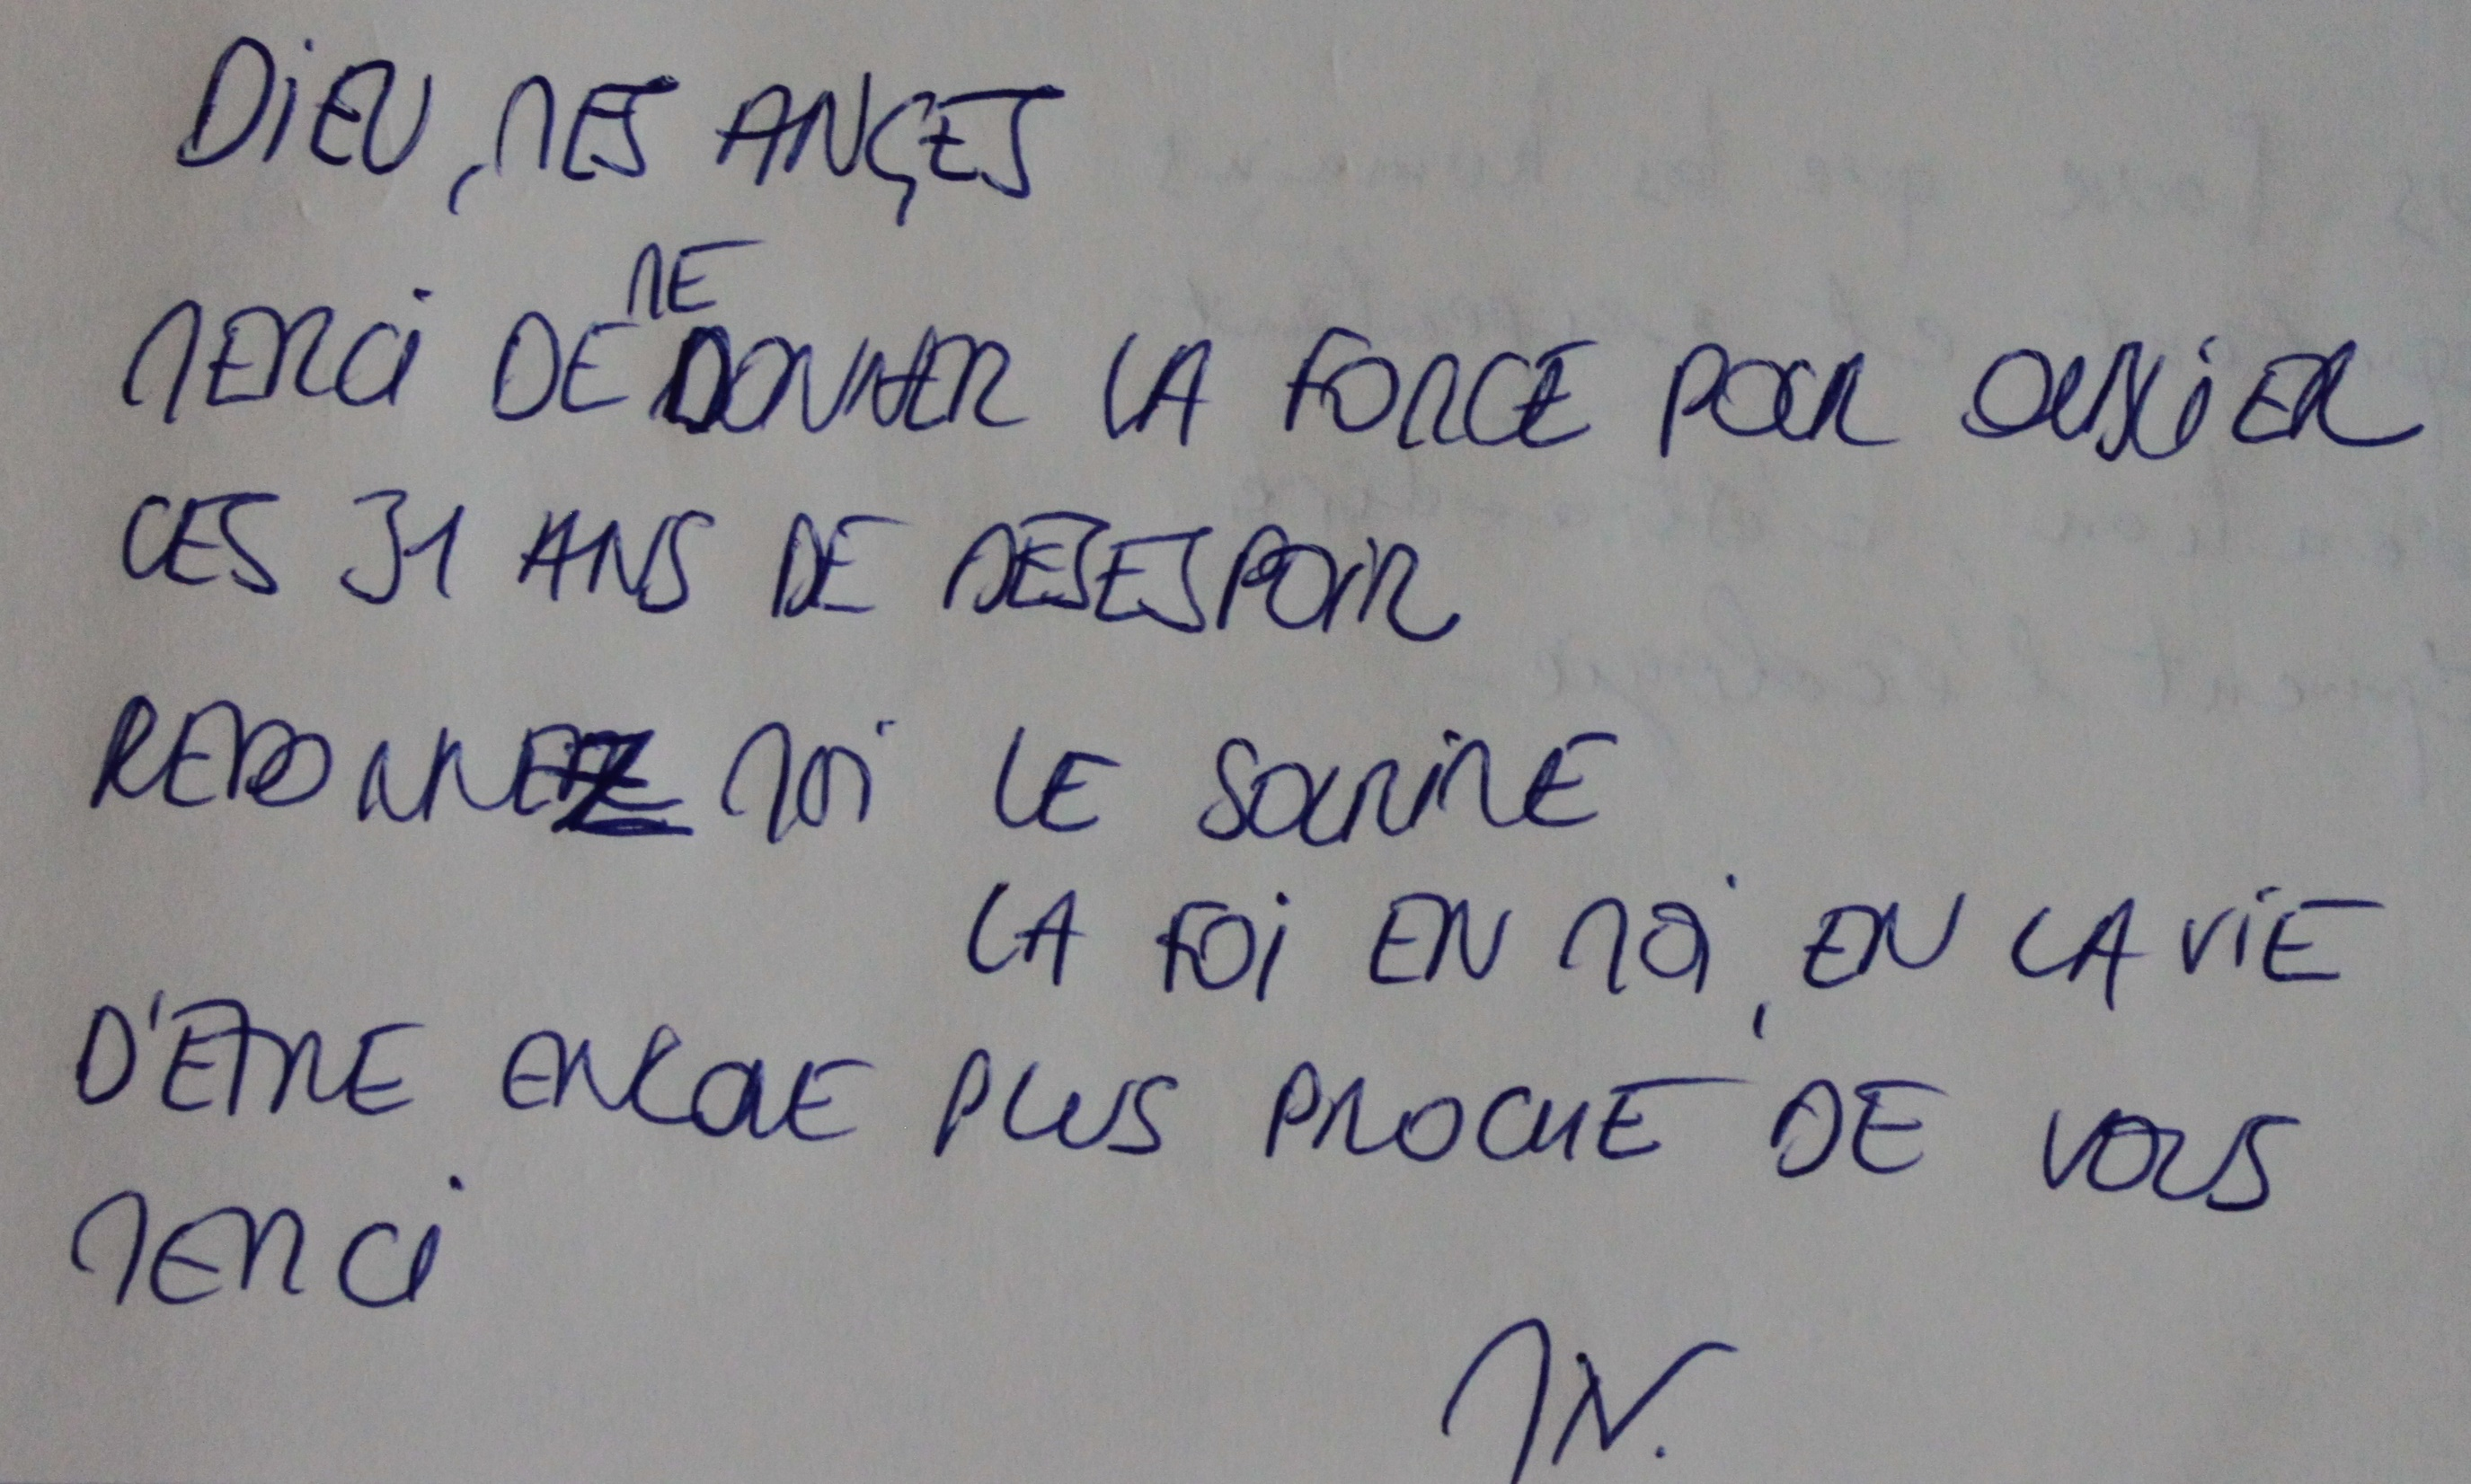 DiEU, MES ANGES
MERCi DE ME DONNER LA FORCE POUR OUBLiER
CES 31 ANS DE DESESPOiR
REDONNEZ MOi LE SOURiRE
LA FOi EN MOi, EN LA ViE
D'ETRE ENCORE PLUS PROCHE DE VOUS
MERCi